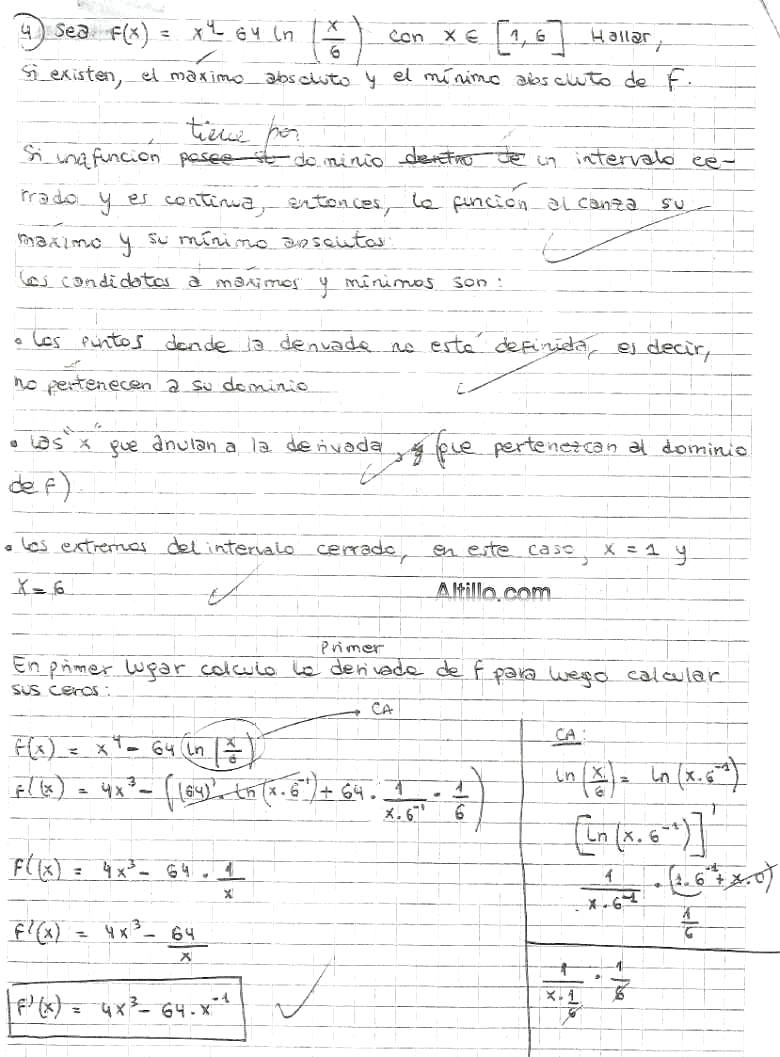 4) Sea F(x) = x⁴ - 64 ln (x/6) con x ∈ [1,6] Hallar,
si existen, el máximo absoluto y el mínimo absoluto de F.
tiene por
Si una función posee st dominio dentro de un intervalo ce-
rrado y es continua, entonces, la función alcanza su
máximo y su mínimo absolutos.
Los candidatos a máximos y mínimos son:
• Los puntos donde la derivada no está definida, es decir,
no pertenecen a su dominio
• Las "x" que anulan a la derivada, y (que pertenezcan al dominio
de F)
• Los extremos del intervalo cerrado, en este caso, x = 1 y
x = 6
Altillo.com
Primer
En primer lugar calculo la derivada de f para luego calcular
sus ceros:
CA
F(x) = x⁴ - 64 (ln (x/6))
F'(x) = 4x³ - ((64)'. ln(x.6⁻¹) + 64 . 1/(x.6⁻¹) . 1/6)
F'(x) = 4x³ - 64 . 1/x
F'(x) = 4x³ - 64/x
F'(x) = 4x³ - 64.x⁻¹
CA:
ln (x/6) = ln (x.6⁻¹)
[ln (x.6⁻¹)]'
1/(x.6⁻¹) . (1.6⁻¹ + x.0)
1/6
1/(x.1/6) . 1/6